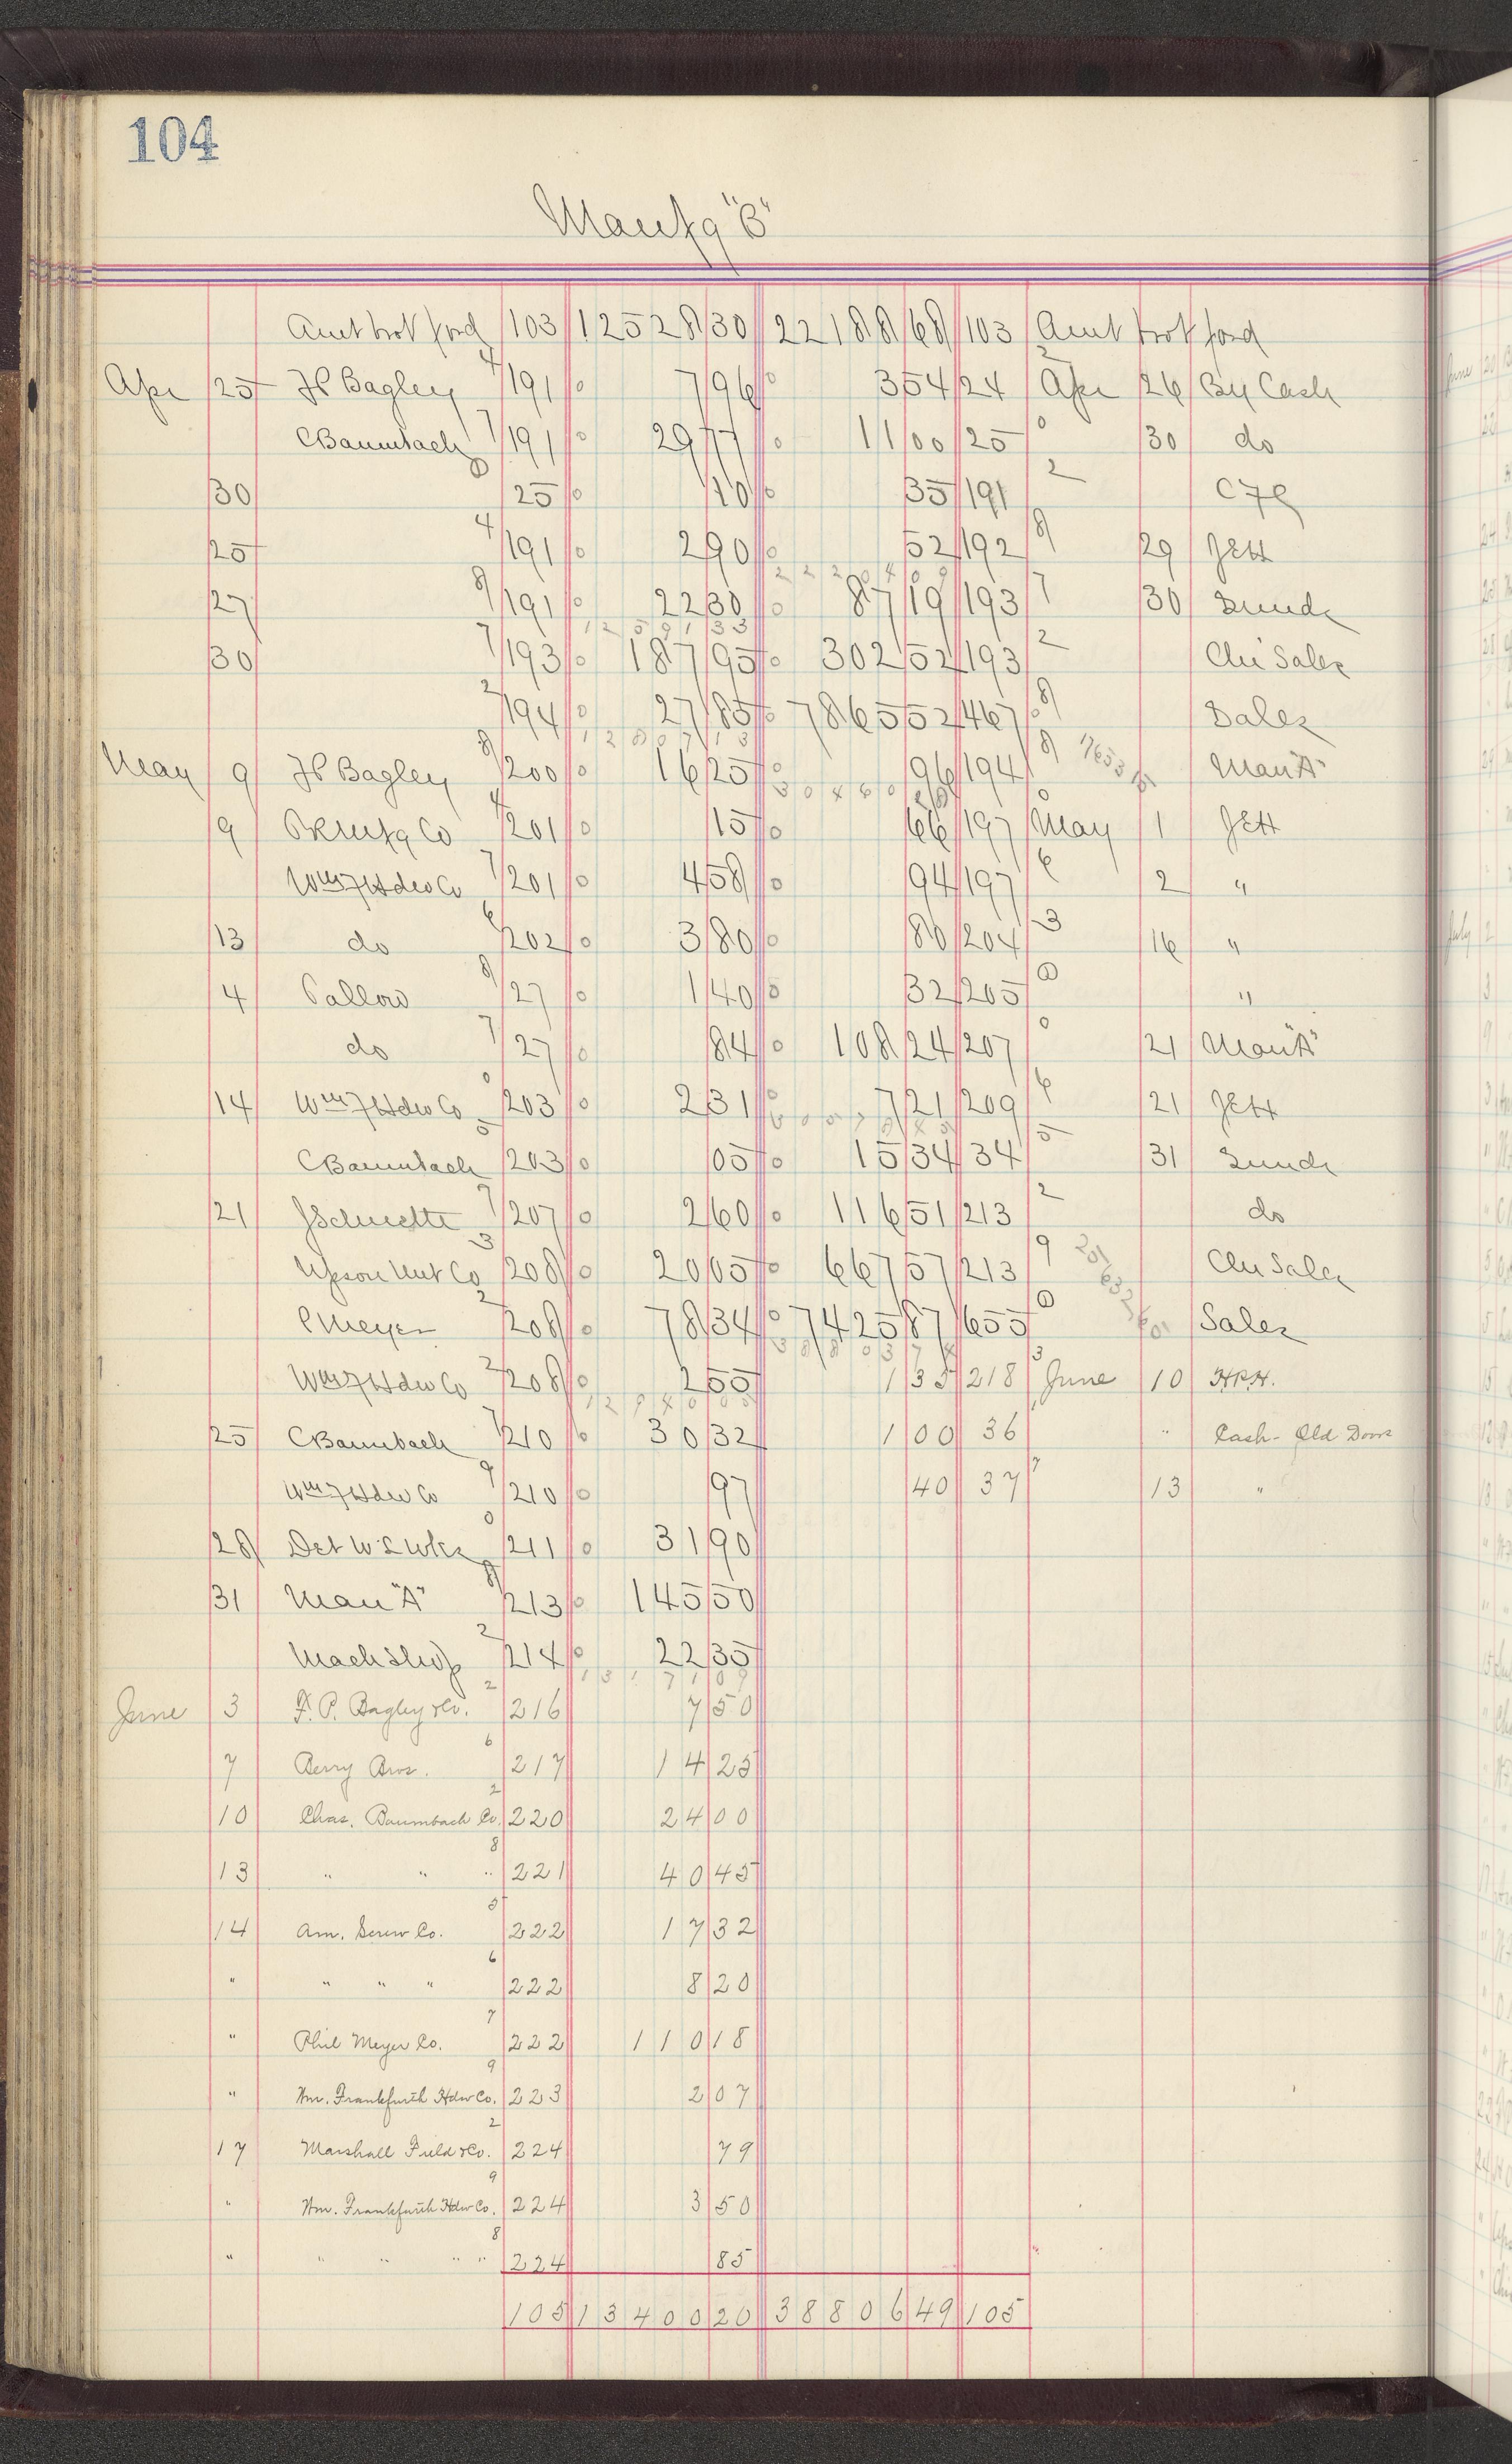 104
Manfg "B"
Amt brot ford 103 12528 30 22188 68 103 Amt brot ford
Apr 25 FP Bagley 4 191 7 96 354 24 2 Apr 26 By Cash
CBaumbach 7 191 29 77 11 00 25 0 30 do
30 25 10 35 191 2 C7C
25 4 191 2 90 52 192 8 29 JEH
27 8 191 22 30 87 19 193 7 30 Sunds
30 7 193 187 95 302 52 193 2 Chi Sales
2 194 27 85 7865 52 467 8 Sales
May 9 FP Bagley 8 200 16 25 96 194 8 Man "A"
9 4 201 15 66 197 0 May 1 JEH
Wm F Hdw Co 7 201 4 58 94 197 6 2 "
13 do 6 202 3 80 80 204 3 16 "
4 Pallow 8 27 1 40 32 205 "
do 7 27 84 108 24 207 0 21 Man "A"
14 Wm F Hdw Co 0 203 2 31 7 21 209 6 21 JEH
CBaumbach 5 203 05 15 34 34 5 31 Sunds
21 JSchuette 7 207 2 60 116 51 213 2 do
Upson Nut Co 3 208 20 05 667 57 213 9 Chi Sales
PMeyer 2 208 78 34 7425 87 655 Sales
Wm F Hdw Co 2 208 2 55 1 35 218 3 June 10 H.P.H.
25 CBaumbach 7 210 30 32 1 00 36 " Cash - Old Door
Wm F Hdw Co 9 210 97 40 37 7 13 "
28 Det W L Wks 0 211 31 90
31 Man "A" 8 213 145 50
Mach Shop 2 214 22 35
June 3 F. P. Bagley & Co. 2 216 7 50
7 Berry Bros. 6 217 14 25
10 Chas. Baumbach Co. 2 220 24 00
13 " " " 8 221 40 45
14 Am. Screw Co. 5 222 17 32
" " " " 6 222 8 20
" Phil Meyer Co. 7 222 110 18
" Wm. Frankfurth Hdw Co. 9 223 2 07
17 Marshall Field & Co. 2 224 79
" Wm. Frankfurth Hdw Co. 9 224 3 50
" " " " " 8 224 85
105 13400 20 38806 49 105